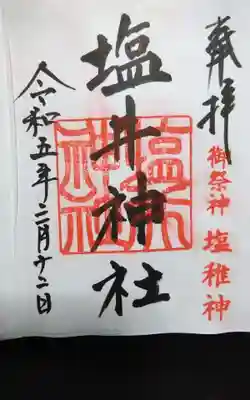 奉拝
御祭神 塩稚神
塩井神社
令和五年二月十二日